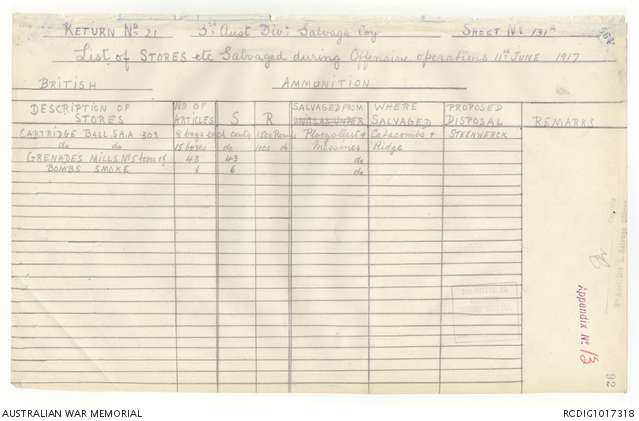 RETURN No. 21 3rd Aust Div: Salvage Coy SHEET No 131A
List of STORES etc Salvaged during Offensive operations 11th JUNE 1917
BRITISH AMMUNITION
DESCRIPTION OF STORES NO OF ARTICLES S R SALVAGED FROM WHERE SALVAGED PROPOSED DISPOSAL REMARKS
CARTRIDGE BALL S.A.A 303 8 Ploegsteert & Catacombs & STEENWERCK
do do 15 boxes do do Messines Ridge
GRENADES MILLS No 5 43 43 do
BOMBS SMOKE 6 6 do
Appendix No. 13
92
AUSTRALIAN WAR MEMORIAL RCDIG1017318